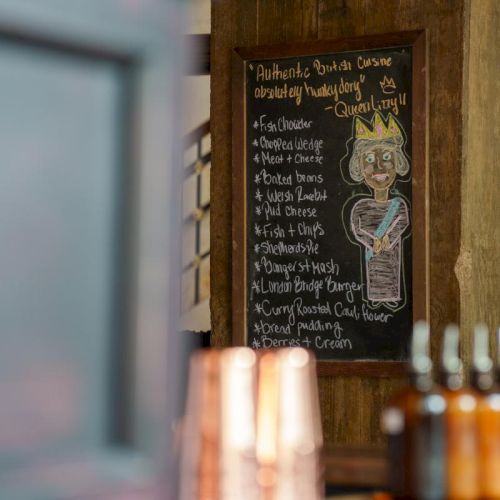 "Authentic British Cuisine
absolutely hunky dory"
- Queen Lizzy II
* Fish Chowder
* Chopped Wedge
* Meat + Cheese
* Baked beans
* Welsh Rarebit
* Pud Cheese
* Fish + Chips
* Shepherds Pie
* Bangers + Mash
* London Bridge Burger
* Curry Roasted Cauliflower
* bread pudding
* Berries + Cream